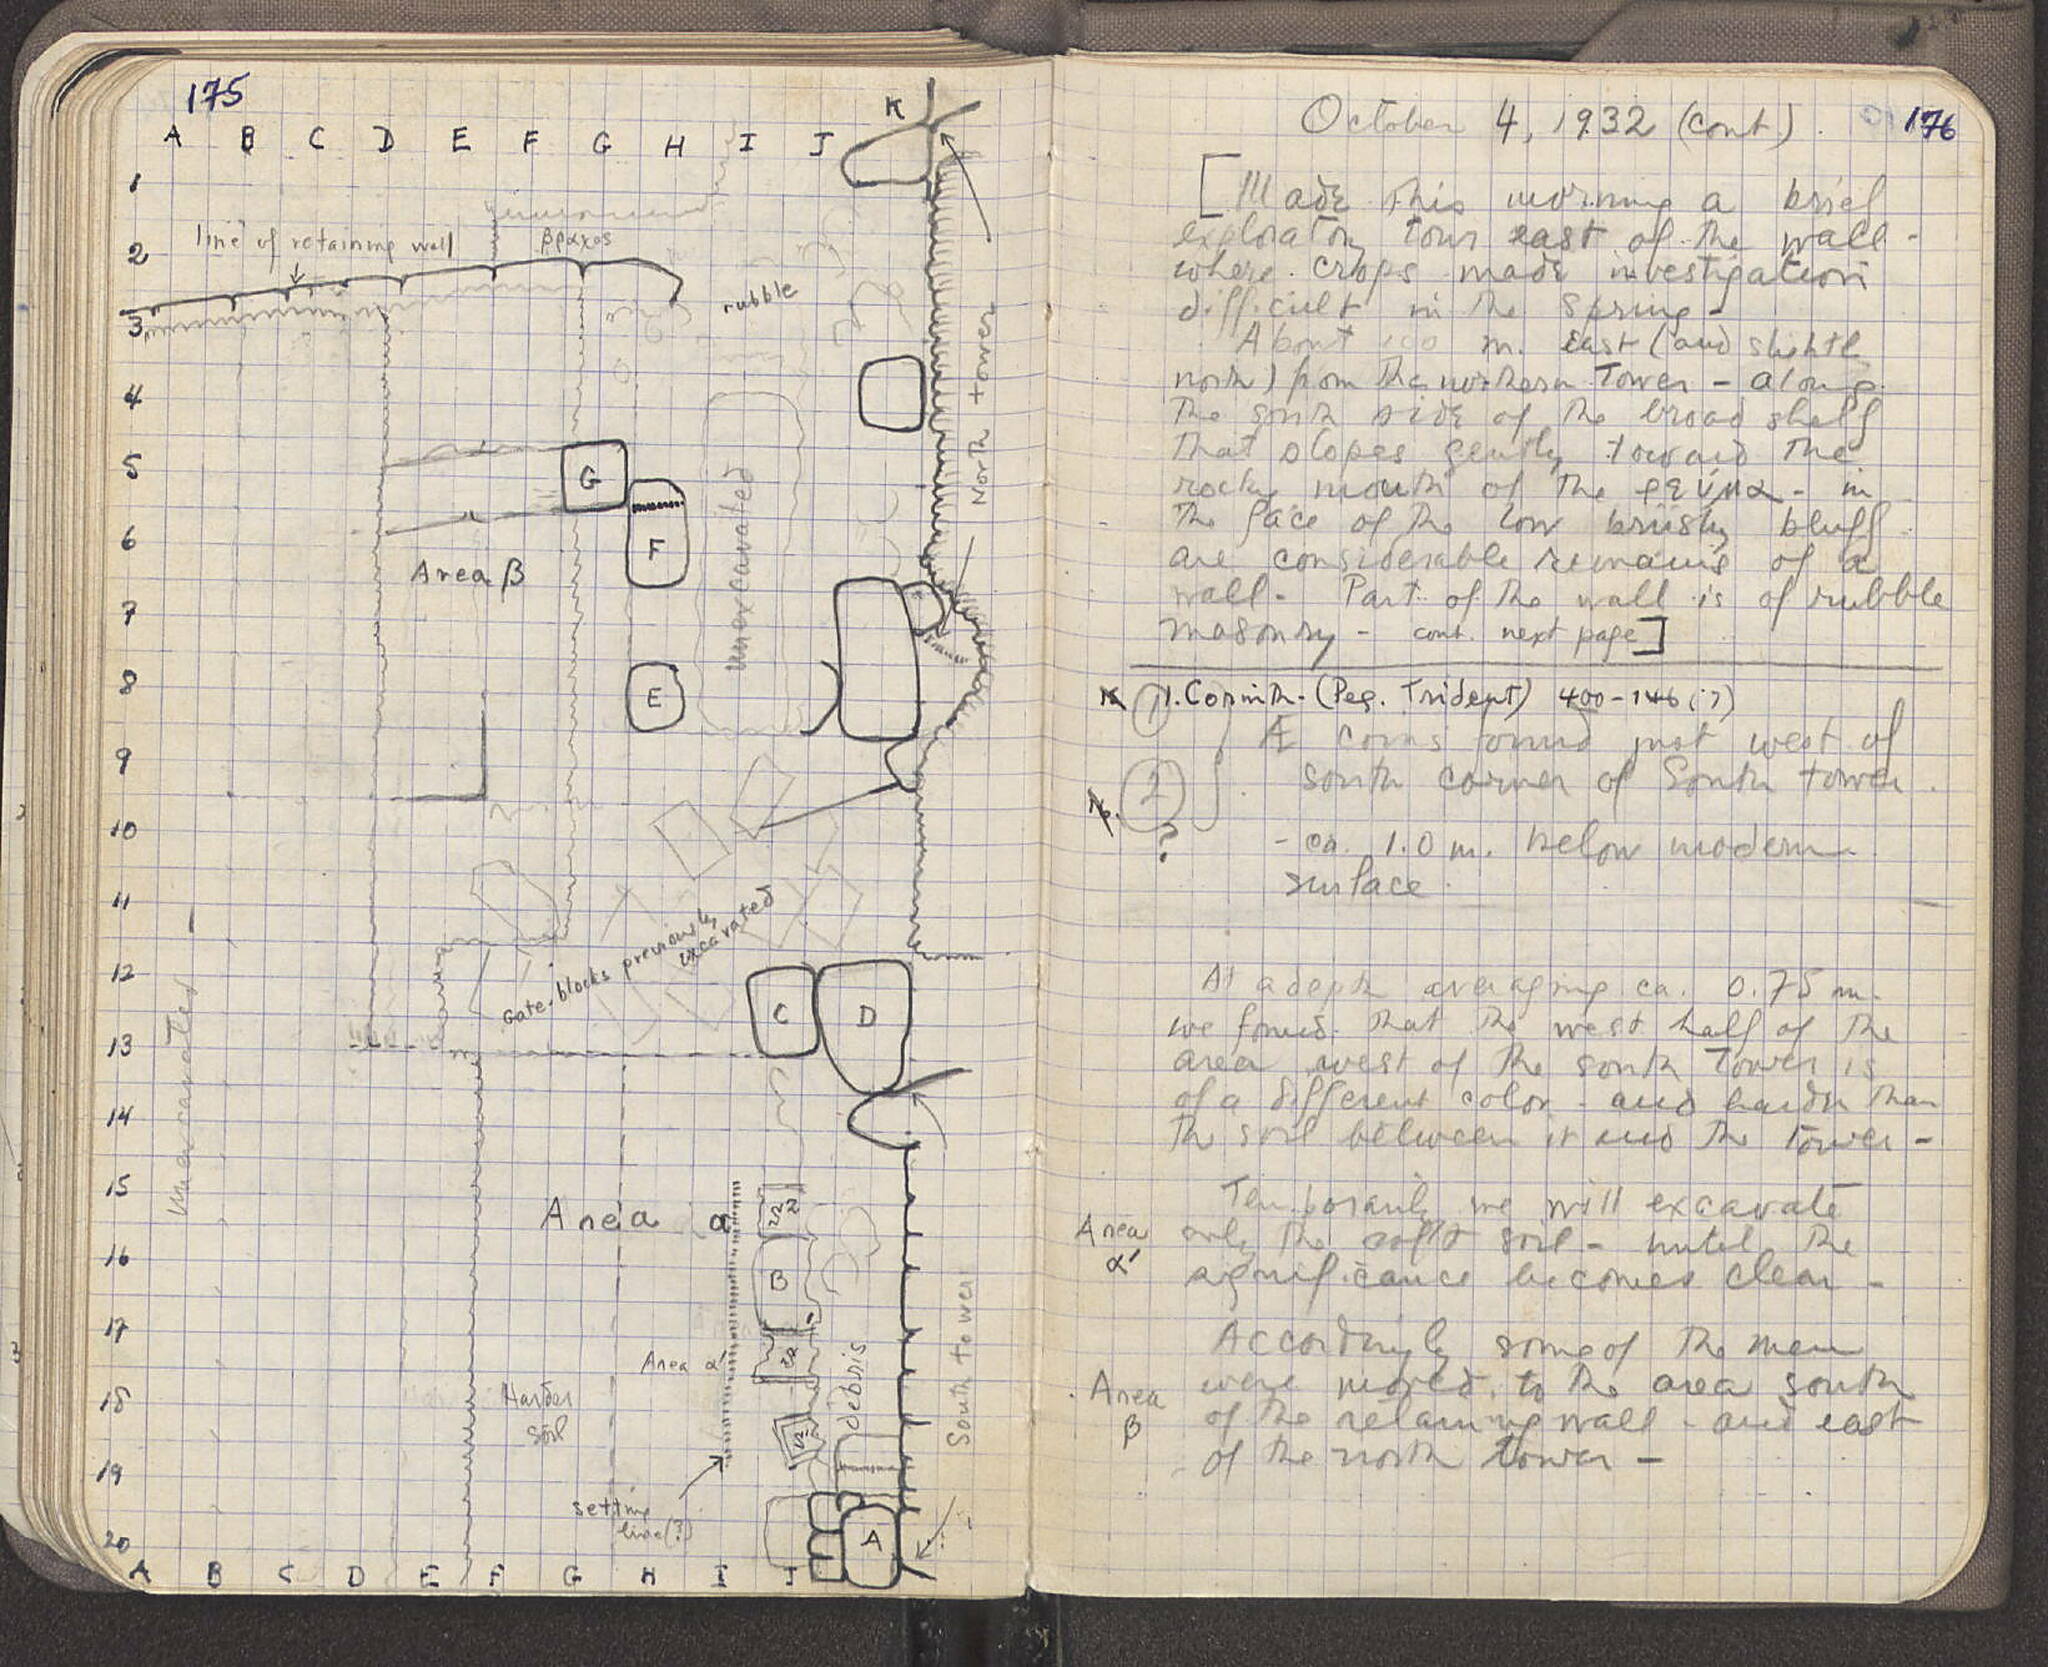 175
K
A B C D E F G H I J
1
line of retaining wall
βράχος
2
rubble
3
North tower
4
5
G
unexcavated
6
F
Area β
7
8
E
9
10
11
Gate-blocks previously
excavated
12
C D
unexcavated
13
14
15
Area α
22
16
B
17
Area α'
22
debris
South tower
18
Harder
soil
22
19
setting
line(?)
20
A
A B C D E F G H I J
October 4, 1932 (cont).
176
[Made this morning a brief
exploratory tour east of the wall -
where crops made investigation
difficult in the spring -
About 100 m. east (and slightly
north) from the northern Tower - along
the south side of the broad shelf
that slopes gently toward the
rocky mouth of the ρεύμα - in
the face of the low brushy bluff
are considerable remains of a
wall - Part of the wall is of rubble
masonry - cont. next page]
N 1 1. Corinth - (Peg. Trident) 400-146 (?)
Æ coins found just west of
No. 2 south corner of South tower.
?
- ca. 1.0 m. below modern
surface.
At a depth averaging ca. 0.75 m.
we found that the west half of the
area west of the south Tower is
of a different color - and harder than
the soil between it and the tower -
Temporarily we will excavate
Area only the soft soil - until the
α' significance becomes clear -
Accordingly some of the men
Area were moved to the area south
β of the retaining wall - and east
of the north tower -